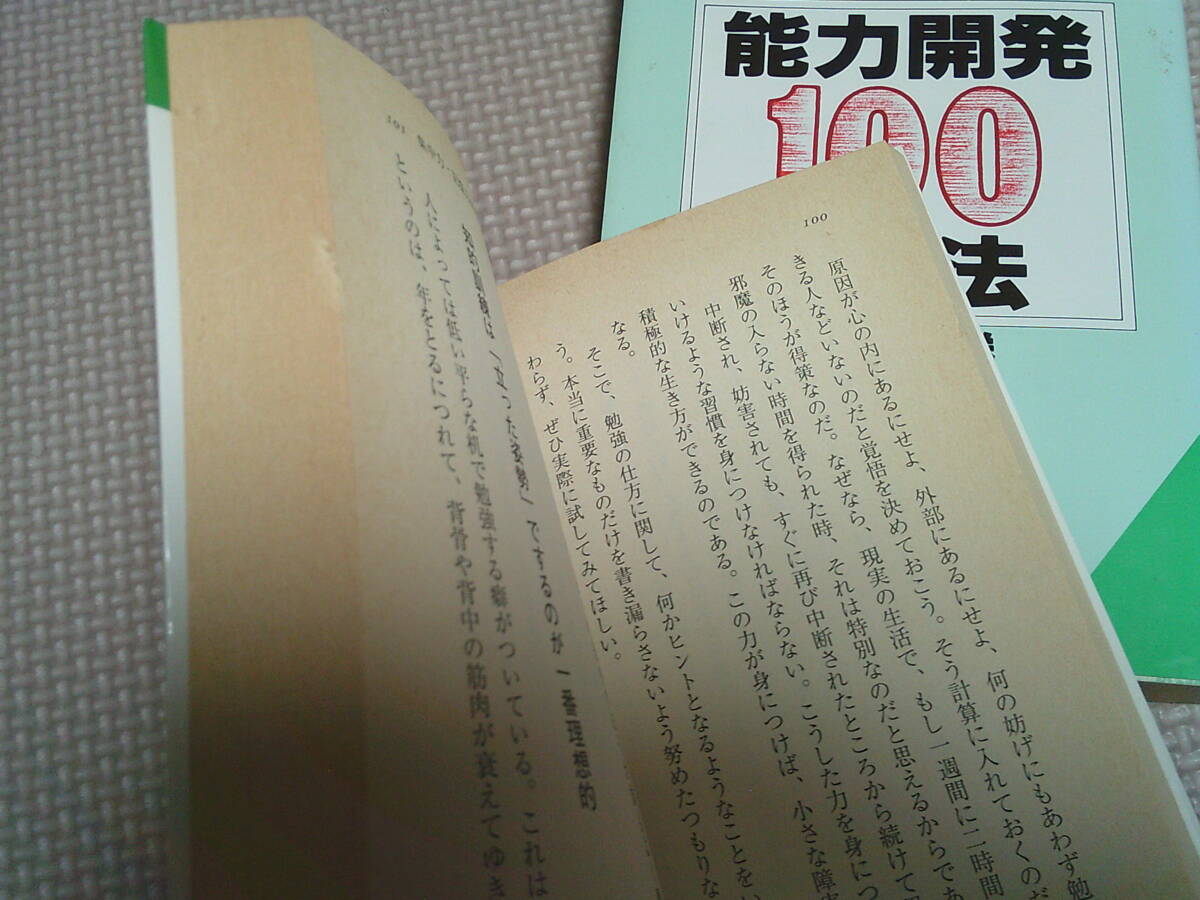 能力開発
100
法
100
原因が心の内にあるにせよ、外部にあるにせよ、何の妨げにもあわず勉
きる人などいないのだと覚悟を決めておこう。そう計算に入れておくのだ
そのほうが得策なのだ。なぜなら、現実の生活で、もし一週間に二時間
邪魔の入らない時間を得られた時、それは特別なのだと思えるからであ
中断され、妨害されても、すぐに再び中断されたところから続けて
いけるような習慣を身につけなければならない。こうした力を身につ
積極的な生き方ができるのである。この力が身につけば、小さな障害
なる。
そこで、勉強の仕方に関して、何かヒントとなるようなことをい
う。本当に重要なものだけを書き漏らさないよう努めたつもりな
わらず、ぜひ実際に試してみてほしい。
101
知的訓練は〈立った姿勢〉でするのが一番理想的
人によっては低い平らな机で勉強する癖がついている。これは
というのは、年をとるにつれて、背骨や背中の筋肉が衰えてゆき